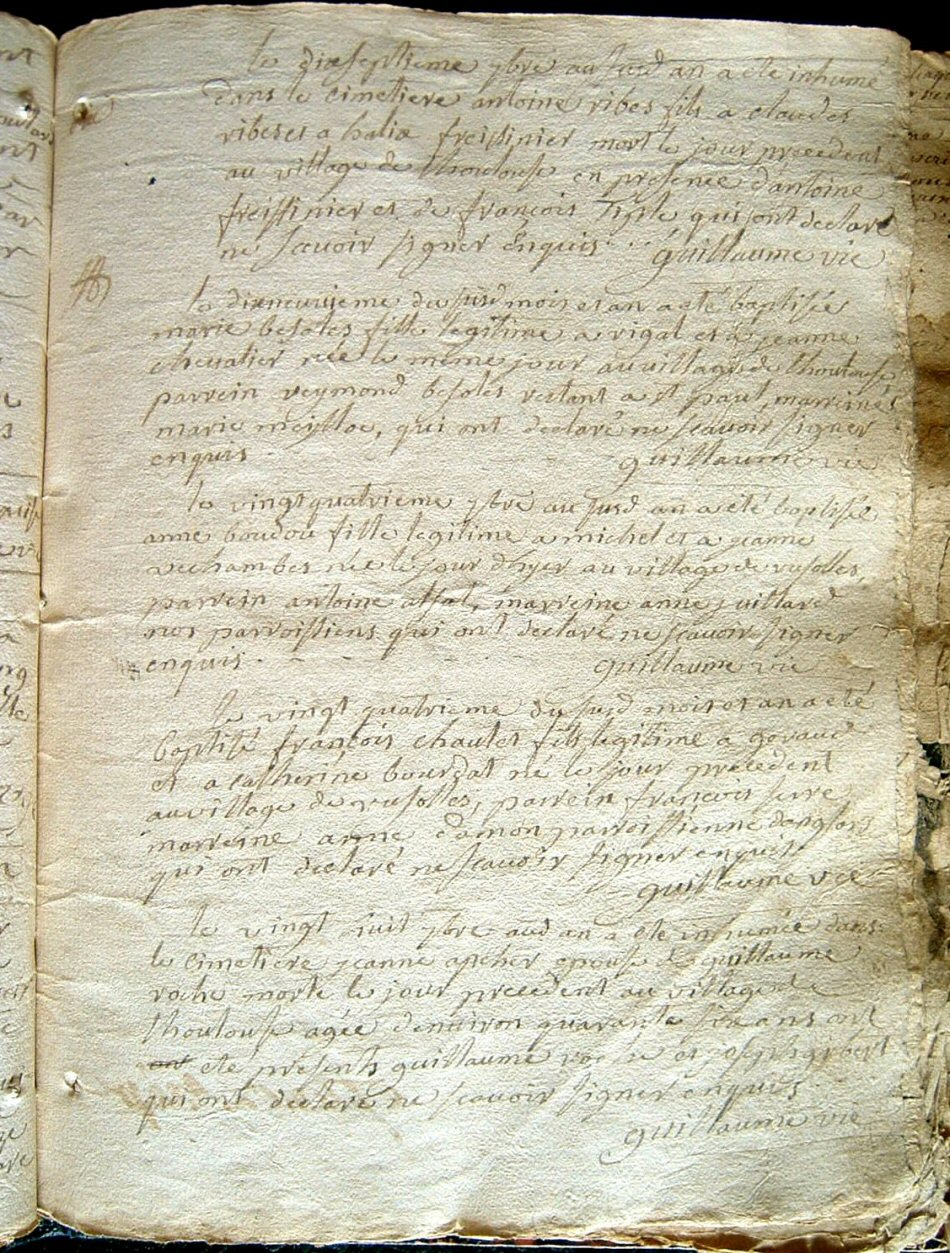 le dixseptieme 7bre au susd an a été inhumé
dans le cimetiere antoine ribes fils a claudes
ribes et a halix freissinier mort le jour precedent
au village de lhoulouse en presence dantoine
freissinier et de françois qui ont declaré
ne scavoir signer enquis guillaume vie
le dixneuvieme du susd mois et an a été baptisée
marie besoles fille legitime a vigal et a jeanne
chevalier née le même jour au village de lhoulouse
parrein reymond besoles restant a st paul, marreine
marie qui ont declaré ne scavoir signer
enquis guillaume vie
le vingtquatrieme 7bre au susd an a été baptisée
anne boudou fille legitime a michel et a jeanne
dechambes née le jour dhyer au village de rusolles,
parrein antoine marreine anne juillard
nos parroissiens qui ont declaré ne scavoir signer
enquis guillaume vie
le vingt quatrieme du susd mois et an a été
baptisé françois chaulet fils legitime a
et a catherine né le jour precedent
au village de rusolles, parrein françois serre
marreine anne damon parroissienne
qui ont declaré ne scavoir signer enquis
guillaume vie
le vingt huit 7bre aud an a été inhumée dans
le cimetiere jeanne apcher epouse de guillaume
roche morte le jour precedent au village de
lhoulouse agée denuiron quarante six ans ont
été presents guillaume roche et joseph
qui ont declaré ne scavoir signer enquis
guillaume vie